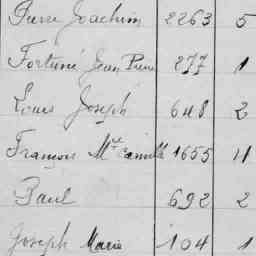 Pierre Joachim 2263 5
Fortuné Jean Pierre 277 1
Louis Joseph 648 2
François Mie Camille 1655 11
Paul 692 2
Joseph Marie 104 1